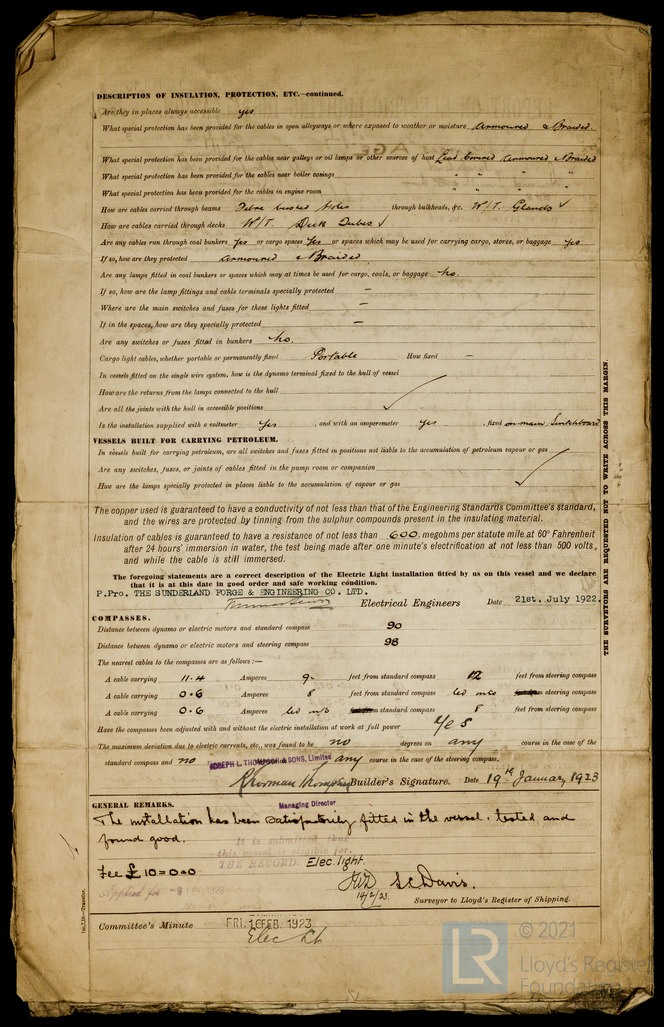 DESCRIPTION OF INSULATION, PROTECTION, ETC.—continued.
Are they in places always accessible yes
What special protection has been provided for the cables in open alleyways or where exposed to weather or moisture Armoured & Braided.
What special protection has been provided for the cables near galleys or oil lamps or other sources of heat Lead Covered Armoured & Braided
What special protection has been provided for the cables near boiler casings " " " "
What special protection has been provided for the cables in engine room " " " "
How are cables carried through beams Fibre bushed Holes through bulkheads, &c. W/T. Glands ✓
How are cables carried through decks W/T. Deck Tubes ✓
Are any cables run through coal bunkers Yes or cargo spaces Yes or spaces which may be used for carrying cargo, stores, or baggage yes
If so, how are they protected Armoured & Braided
Are any lamps fitted in coal bunkers or spaces which may at times be used for cargo, coals, or baggage No.
If so, how are the lamp fittings and cable terminals specially protected —
Where are the main switches and fuses for those lights fitted —
If in the spaces, how are they specially protected —
Are any switches or fuses fitted in bunkers No.
Cargo light cables, whether portable or permanently fixed Portable How fixed —
In vessels fitted on the single wire system, how is the dynamo terminal fixed to the hull of vessel
How are the returns from the lamps connected to the hull
Are all the joints with the hull in accessible positions ✓
Is the installation supplied with a voltmeter Yes , and with an amperemeter yes , fixed on main Switchboard
VESSELS BUILT FOR CARRYING PETROLEUM.
In vessels built for carrying petroleum, are all switches and fuses fitted in positions not liable to the accumulation of petroleum vapour or gas
Are any switches, fuses, or joints of cables fitted in the pump room or companion
How are the lamps specially protected in places liable to the accumulation of vapour or gas ✓
The copper used is guaranteed to have a conductivity of not less than that of the Engineering Standards Committee's standard,
and the wires are protected by tinning from the sulphur compounds present in the insulating material.
Insulation of cables is guaranteed to have a resistance of not less than 600 megohms per statute mile at 60° Fahrenheit
after 24 hours' immersion in water, the test being made after one minute's electrification at not less than 500 volts,
and while the cable is still immersed.
The foregoing statements are a correct description of the Electric Light installation fitted by us on this vessel and we declare
that it is at this date in good order and safe working condition.
P.Pro. THE SUNDERLAND FORGE & ENGINEERING CO. LTD.
Electrical Engineers Date 21st. July 1922.
COMPASSES.
Distance between dynamo or electric motors and standard compass 90
Distance between dynamo or electric motors and steering compass 98
The nearest cables to the compasses are as follows:—
A cable carrying 11.4 Amperes 9. feet from standard compass 12 feet from steering compass
A cable carrying 0.6 Amperes 8 feet from standard compass led into steering compass
A cable carrying 0.6 Amperes led into standard compass 8 feet from steering compass
Have the compasses been adjusted with and without the electric installation at work at full power Yes
The maximum deviation due to electric currents, etc., was found to be no degrees on any course in the case of the
standard compass and no any course in the case of the steering compass.
JOSEPH L. THOMPSON & SONS, Limited
R Norman Thompson Builder's Signature. Date 19th January 1923
Managing Director
GENERAL REMARKS.
The installation has been satisfactorily fitted in the vessel, tested and
found good.
It is submitted that
this vessel is eligible for
THE RECORD. Elec. light.
Fee £10=0=0
14/2/23. S.C. Davis.
Surveyor to Lloyd's Register of Shipping.
Committee's Minute FRI. 16 FEB. 1923
Elec Lt
THE SURVEYORS ARE REQUESTED NOT TO WRITE ACROSS THIS MARGIN.
LR
© 2021
Lloyd's Register
Foundation